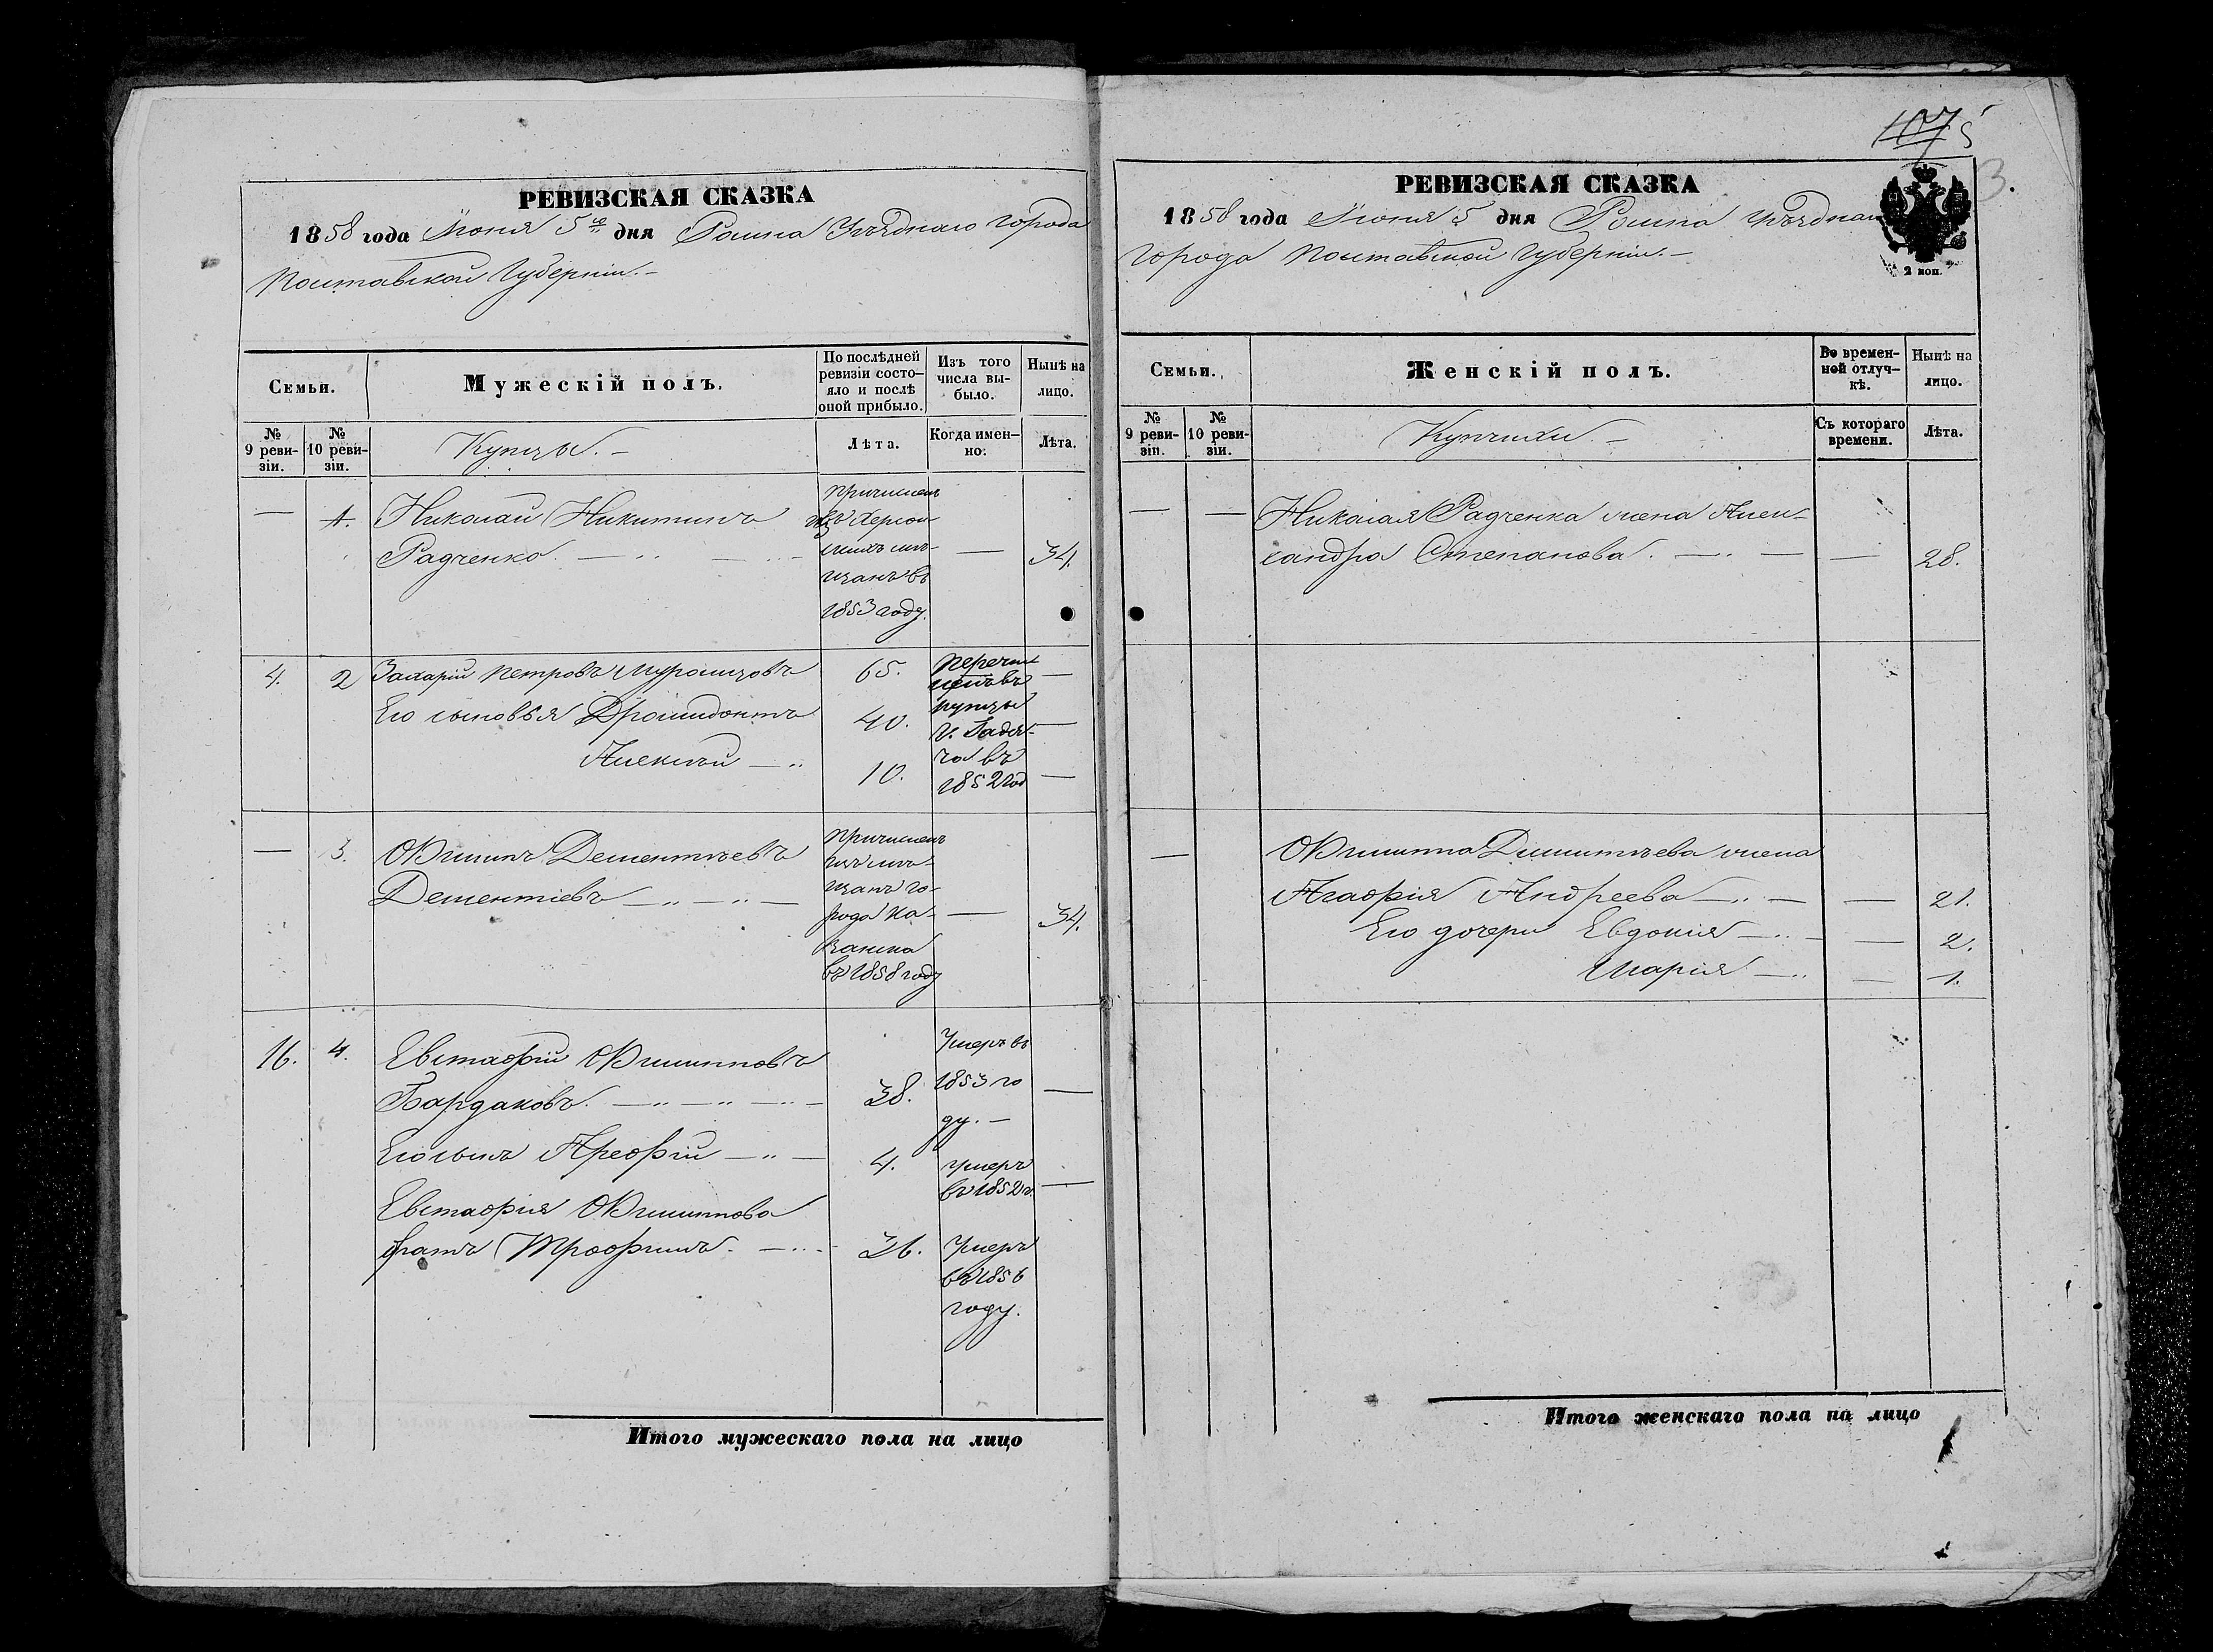 РЕВИЗСКАЯ СКАЗКА
1858 года Июня 5го дня Ромна Уѣзднаго города
Полтавской Губерніи.–
Семьи.
Мужескій полъ.
По послѣдней ревизіи состо–яло и послѣ оной прибыло.
Изъ того числа вы–было.
Нынѣ на лицо.
№ 9 реви–зіи.
№ 10 реви–зіи.
Купцы.–
Лѣта.
Когда имен–но.
Лѣта.
— 1. Николай Никитинъ
Радченко. — 34.
причисленъ
изъ Херсон
скихъ мѣ–
щанъ въ
1853 году.
4. 2 Захарій Петровъ Муромцовъ 65. —
Его сыновья 40. —
Алексѣй — 10. —
перечис
ленъ въ
купцы
г. Гадя–
ча въ
1852 год
— 3. Филипъ Дементьевъ
Дементіевъ — 34.
причисленъ
изъ мѣ–
щанъ го–
рода
въ 1858 году
16. 4. Евстафій Филипповъ
Бардаковъ. 38. Умеръ въ 1853 го
ду.– —
Его сынъ Арефій — 4. умеръ
въ 1852 г. —
Евстафія Филиппова
братъ Трофимъ. — 36. Умеръ
въ 1856
году.
Итого мужескаго пола на лицо
107 5
3.
РЕВИЗСКАЯ СКАЗКА
1858 года Июня 5 дня Ромна Уѣзднаго
города Полтавской Губерніи.–
2 коп.
Семьи.
Женскій полъ.
Во времен–ной отлуч–кѣ.
Нынѣ на лицо.
№ 9 реви–зіи.
№ 10 реви–зіи.
Купчихи.–
Съ котораго времени.
Лѣта.
— — Николая Радченка жена Алек–
сандра Степанова. — — 28.
— Филиппа Дементьева жена
Агафія Андреева — — 21.
Его дочери Евдокія — — 2.
Марія — — 1.
Итого женскаго пола на лицо